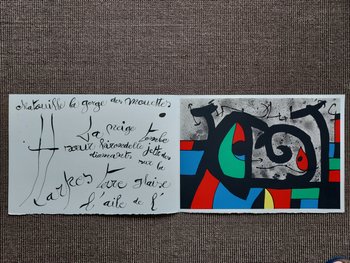 chatouille la gorge des mouettes
La neige tombe
sous l'hirondelle jette des
diamants
Harpes terre glaise
l'aile de l'